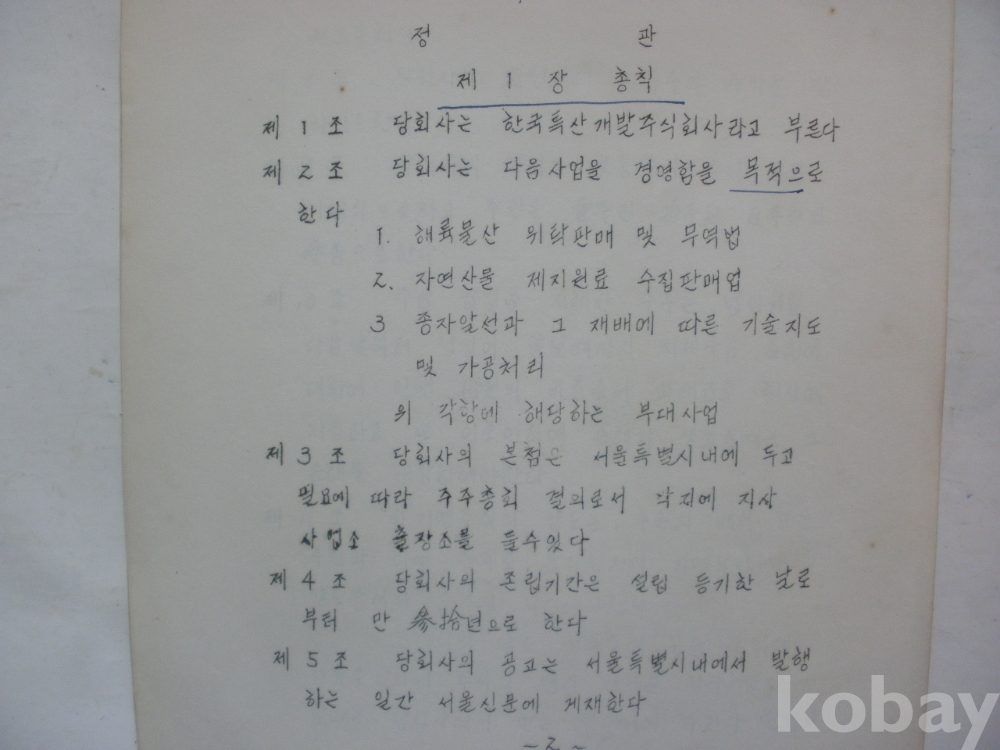 정 관
제 1 장 총칙
제 1 조 당회사는 한국특산개발주식회사라고 부른다
제 2 조 당회사는 다음사업을 경영함을 목적으로
한다
1. 해륙물산 위탁판매 및 무역법
2. 자연산물 제지원료 수집판매업
3 종자알선과 그 재배에 따른 기술지도
및 가공처리
위 각항에 해당하는 부대사업
제 3 조 당회사의 본점은 서울특별시내에 두고
필요에 따라 주주총회 결의로서 각지에 지상
사업소 출장소를 둘수있다
제 4 조 당회사의 존립기간은 설립 등기한 날로
부터 만 参拾년으로 한다
제 5 조 당회사의 공고는 서울특별시내에서 발행
하는 일간 서울신문에 게재한다
~2~
kobay